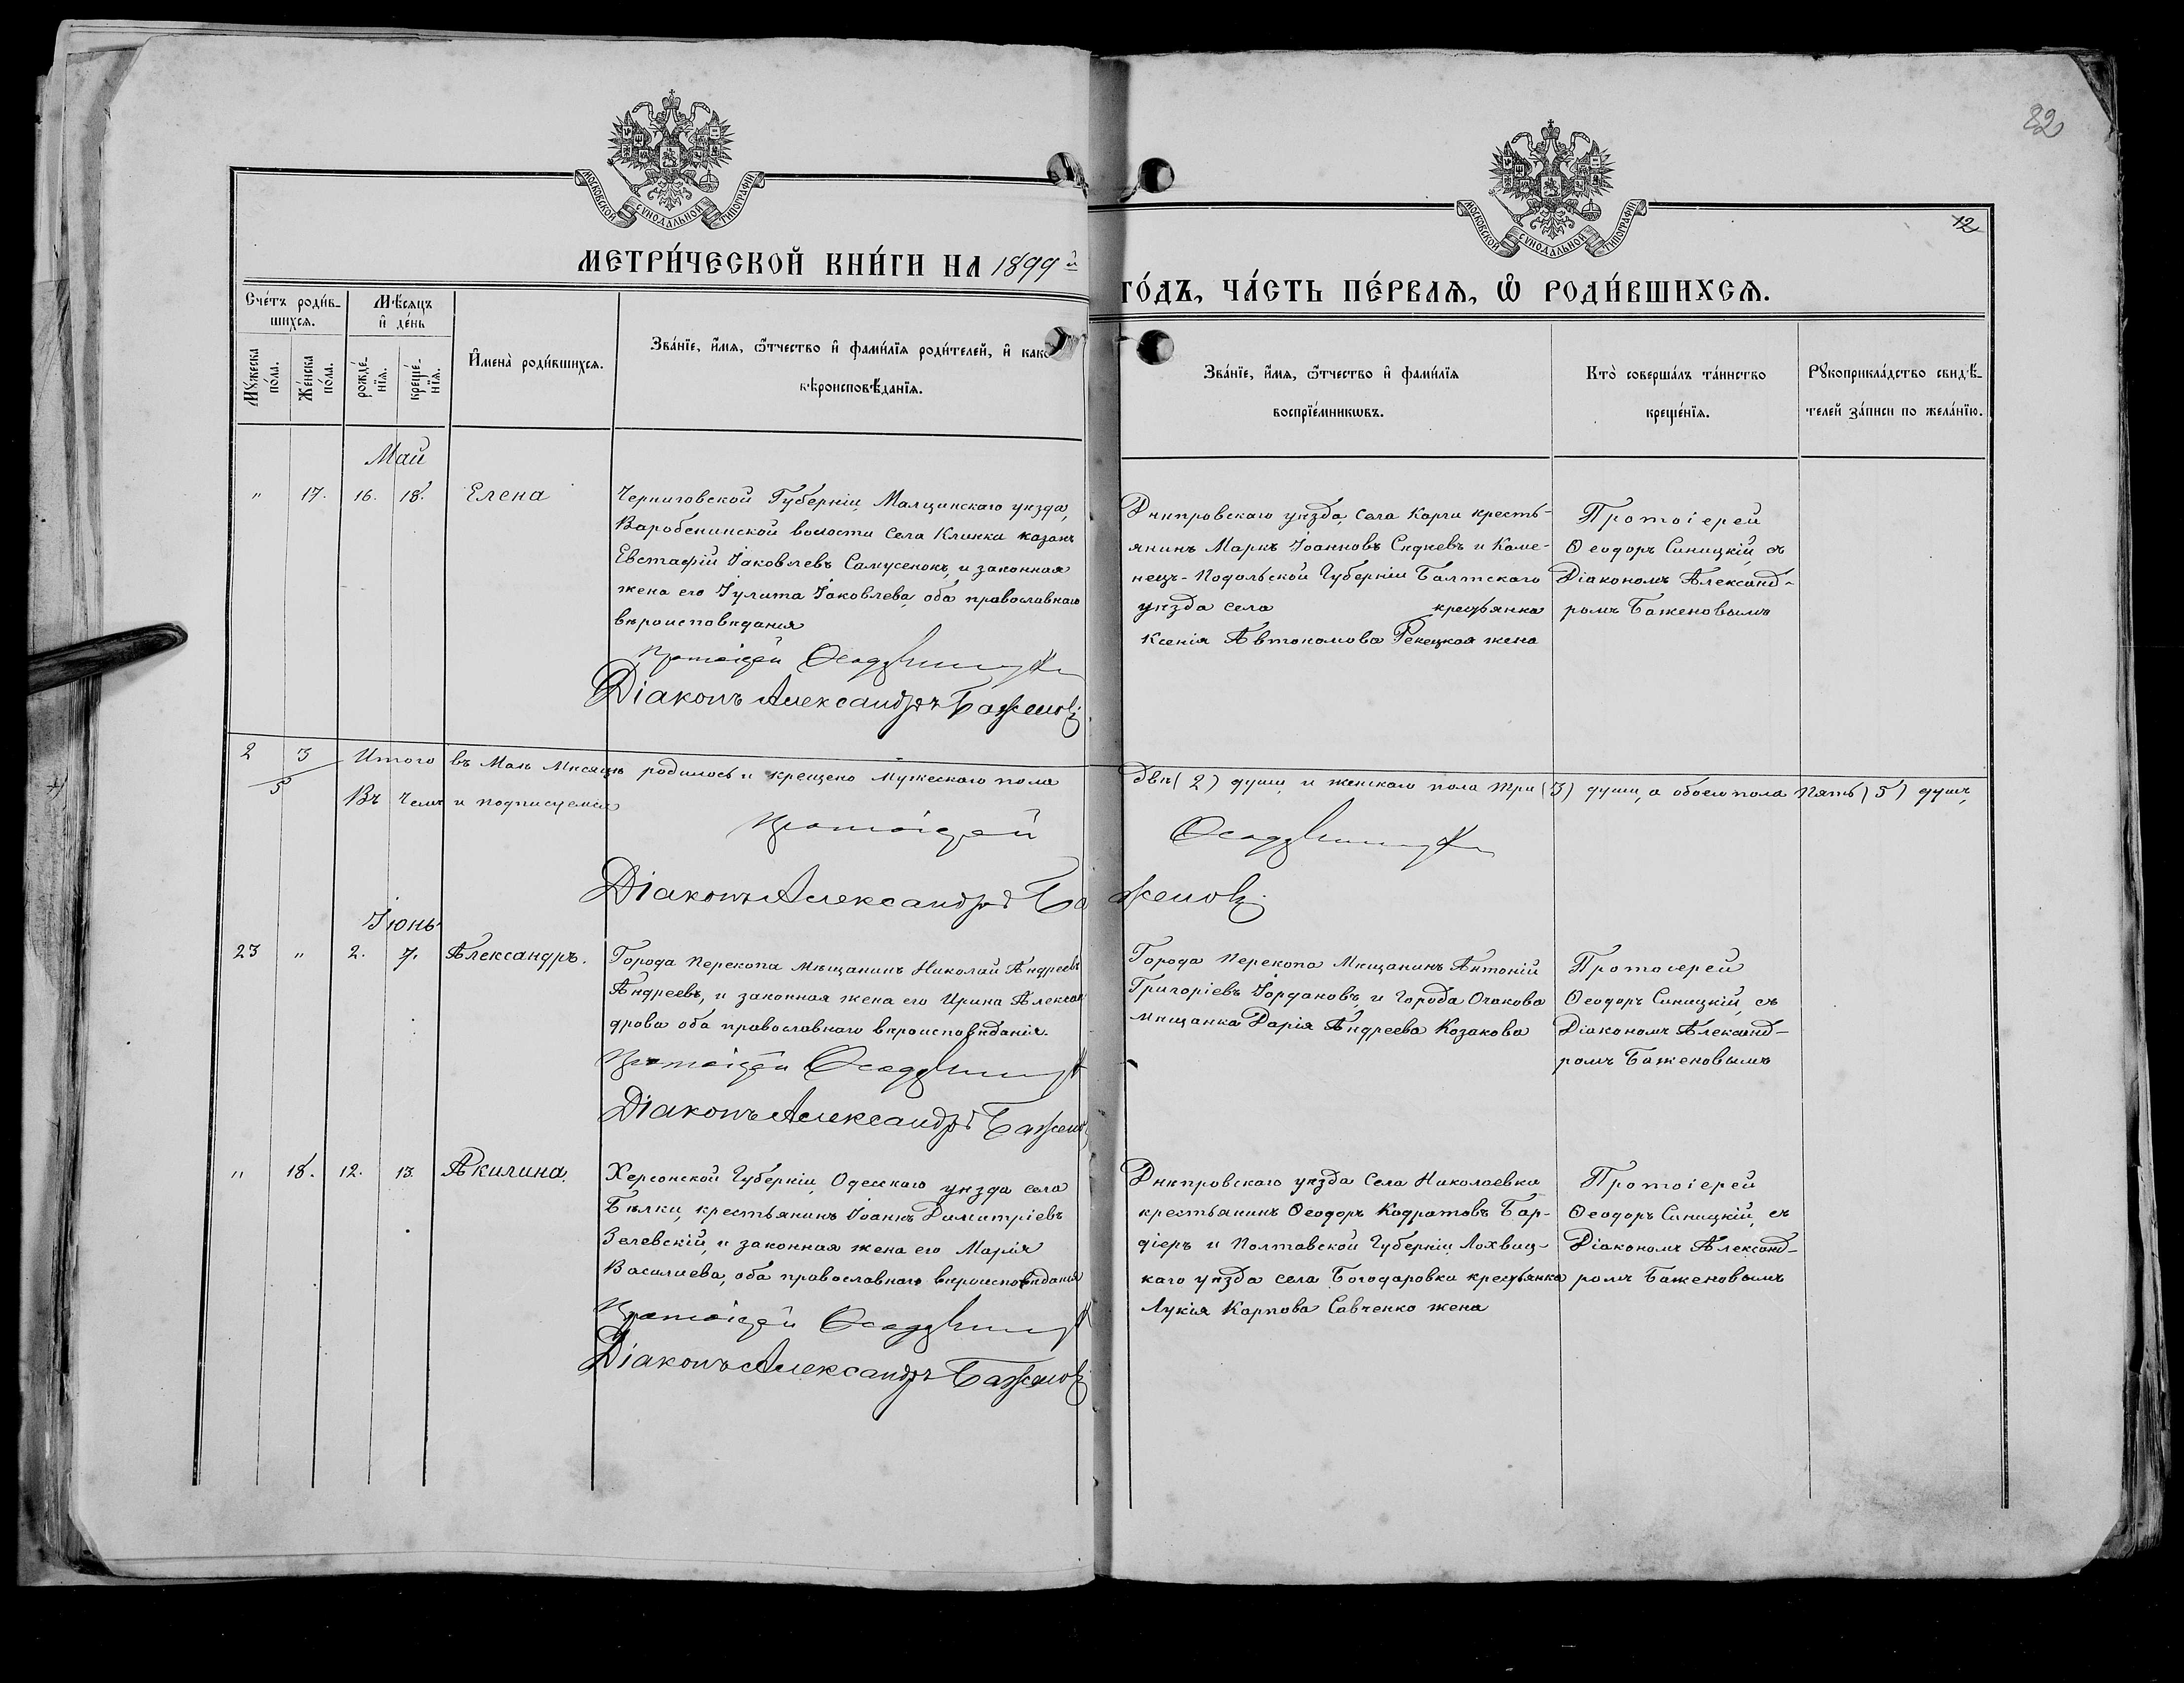 22
МОСКОВСКОЙ СѴНОДАЛЬНОЙ ТИПОГРАФІИ
МОСКОВСКОЙ СѴНОДАЛЬНОЙ ТИПОГРАФІИ
12
МЕТРИ́ЧЕСКОЙ КНИ́ГИ НА 1899 й
ГО́ДЪ, ЧА́СТЬ ПЕ́РВАЯ, Ѡ РОДИ́ВШИХСЯ.
Сче́тъ роди́в-
шихся.
Мѣ́сяцъ
и де́нь
Мꙋ́жеска
по́ла.
Же́нска
по́ла.
рожде́-
нїя.
креще́-
нїя.
И҆мена̀ роди́вшихся.
Зва́нїе, и҆́мя, ѻ҆́тчество и҆ фами́лїя роди́телей, и҆ как
вѣроисповѣ́данїя.
Зва́нїе, и҆́мя, ѻ҆́тчество и҆ фами́лїя
воспрїе́мникѡвъ.
Кто̀ соверша́лъ та́инство
креще́нїя.
Рꙋкоприкла́дство свидѣ́-
телей за́писи по жела́нїю.
Май
" 17. 16. 18. Елена
Черниговской Губерніи, Мглинскаго уѣзда,
волости села казакъ
Евстафій Іаковлевъ Самусенокъ, и законная
жена его Іулита Іаковлева, оба православнаго
вѣроисповѣданія
Протоіерей Ѳеодоръ Синицкій
Діаконъ Александръ Баженовъ
Днѣпровскаго уѣзда, села Карги кресть-
янинъ Маркъ Іоанновъ и Каме-
нецъ-Подольской Губерніи Балтскаго
уѣзда села крестьянка
Ксенія Автономова жена
Протоіерей
Ѳеодоръ Синицкій, съ
Діакономъ Александ-
ромъ Баженовымъ
2 3 Итого въ Маѣ Мѣсяцѣ родилось и крещено мужескаго пола двѣ (2) души, и женскаго пола три (3) души, а обоего пола пять (5) душъ,
5 Въ чемъ и подписуемся
Протоіерей Ѳеодоръ Синицкій
Діаконъ Александръ Баженовъ.
Іюнь
23 " 2. 7. Александръ.
Города Перекопа Мѣщанинъ Николай Андреевъ
Андреевъ, и законная жена его Ирина Алексан
дрова оба православнаго вѣроисповѣданія.
Протоіерей Ѳеодоръ Синицкій
Діаконъ Александръ Баженов
Города Перекопа Мѣщанинъ Антоній
Григоріевъ Іордановъ, и города Очакова
мѣщанка Дарія Андреева Козакова
Протоіерей
Ѳеодоръ Синицкій, съ
Діакономъ Александ-
ромъ Баженовымъ
" 18. 12. 13. Акилина.
Херсонской Губерніи, Одесскаго уѣзда села
Бѣлки, крестьянинъ Іоаннъ Димитріевъ
Зелевскій, и законная жена его Марія
Василиева, оба православнаго вѣроисповѣданія
Протоіерей Ѳеодоръ Синицкій
Діаконъ Александръ Баженовъ
Днѣпровскаго уѣзда села Николаевки
крестьянинъ Ѳеодоръ Кодратовъ Бар-
діеръ и Полтавской Губерніи, Лохвиц-
каго уѣзда села Богодаровки крестьянка
Лукія Карпова Савченко жена
Протоіерей
Ѳеодоръ Синицкій, съ
Діакономъ Александ-
ромъ Баженовымъ